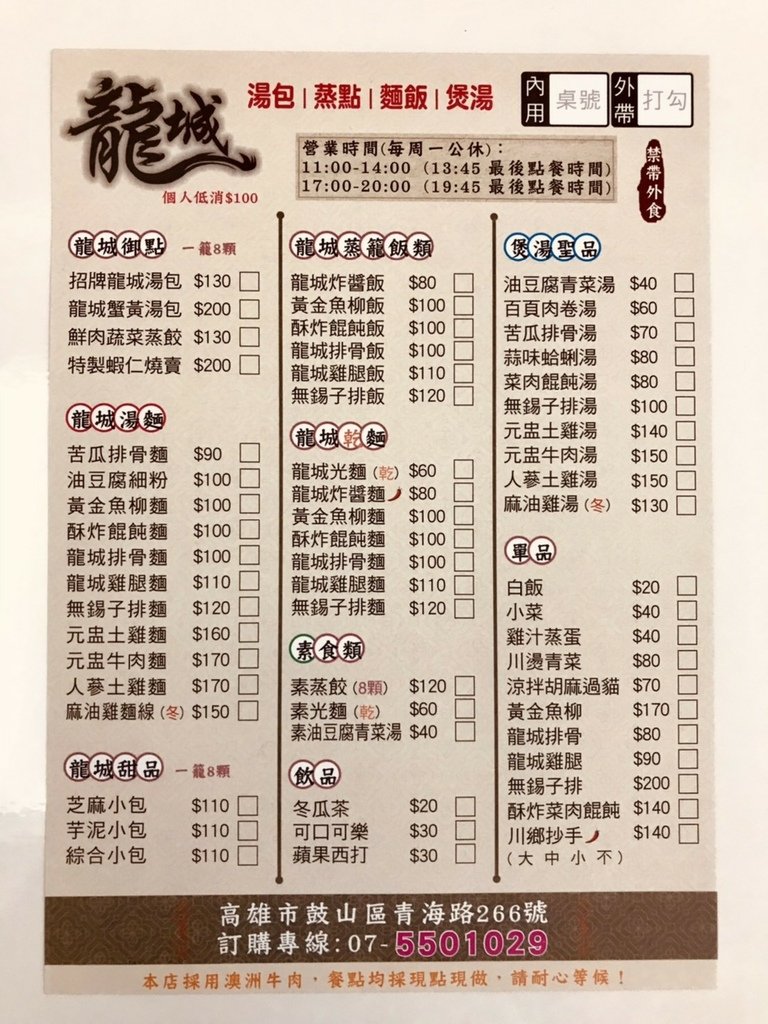 龍城
湯包|蒸點|麵飯|煲湯
內用 桌號 外帶 打勾
營業時間(每周一公休):
11:00-14:00 (13:45 最後點餐時間)
17:00-20:00 (19:45 最後點餐時間)
禁帶外食
個人低消$100
龍城御點 一籠8顆
招牌龍城湯包 $130
龍城蟹黃湯包 $200
鮮肉蔬菜蒸餃 $130
特製蝦仁燒賣 $200
龍城湯麵
苦瓜排骨麵 $90
油豆腐細粉 $100
黃金魚柳麵 $100
酥炸餛飩麵 $100
龍城排骨麵 $100
龍城雞腿麵 $110
無錫子排麵 $120
元盅土雞麵 $160
元盅牛肉麵 $170
人蔘土雞麵 $170
麻油雞麵線(冬) $150
龍城甜品 一籠8顆
芝麻小包 $110
芋泥小包 $110
綜合小包 $110
龍城蒸籠飯類
龍城炸醬飯 $80
黃金魚柳飯 $100
酥炸餛飩飯 $100
龍城排骨飯 $100
龍城雞腿飯 $110
無錫子排飯 $120
龍城乾麵
龍城光麵(乾) $60
龍城炸醬麵 $80
黃金魚柳麵 $100
酥炸餛飩麵 $100
龍城排骨麵 $100
龍城雞腿麵 $110
無錫子排麵 $120
素食類
素蒸餃(8顆) $120
素光麵(乾) $60
素油豆腐青菜湯 $40
飲品
冬瓜茶 $20
可口可樂 $30
蘋果西打 $30
煲湯聖品
油豆腐青菜湯 $40
百頁肉卷湯 $60
苦瓜排骨湯 $70
蒜味蛤蜊湯 $80
菜肉餛飩湯 $80
無錫子排湯 $100
元盅土雞湯 $140
元盅牛肉湯 $150
人蔘土雞湯 $150
麻油雞湯(冬) $130
單品
白飯 $20
小菜 $40
雞汁蒸蛋 $40
川燙青菜 $80
涼拌胡麻過貓 $70
黃金魚柳 $170
龍城排骨 $80
龍城雞腿 $90
無錫子排 $200
酥炸菜肉餛飩 $140
川鄉抄手 $140
(大中小不)
高雄市鼓山區青海路266號
訂購專線:07-5501029
本店採用澳洲牛肉,餐點均採現點現做,請耐心等候!